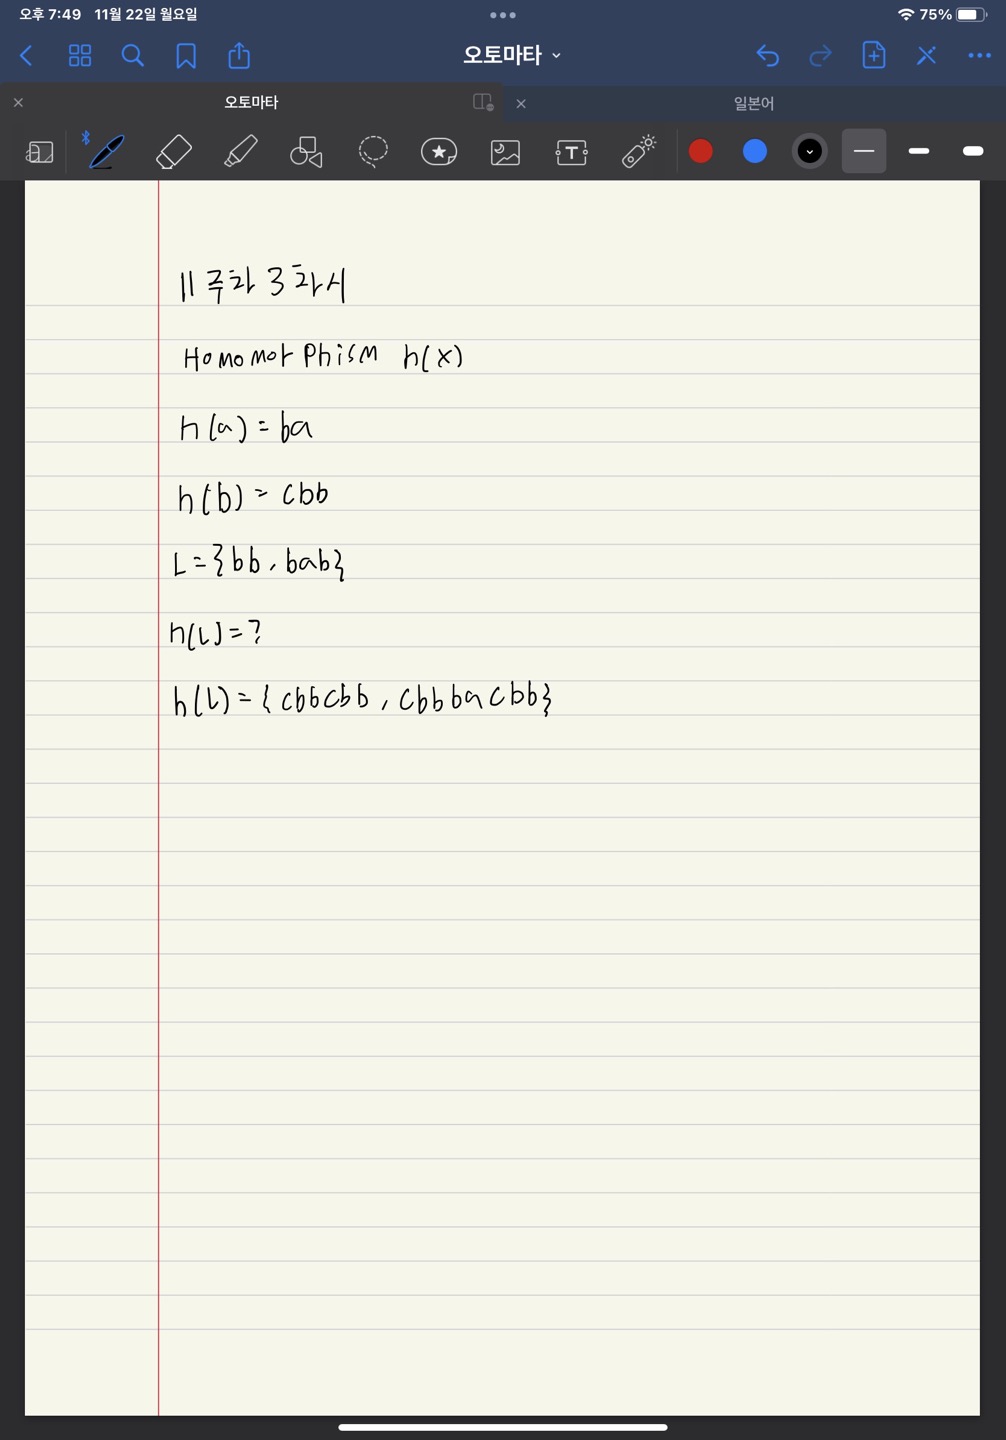 오후 7:49 11월 22일 월요일
75%
오토마타
오토마타
일본어
11주차 3차시
Homomorphism h(x)
h(a) = ba
h(b) = cbb
L = {bb, bab}
h(L) = ?
h(L) = {cbbcbb, cbbbacbb}